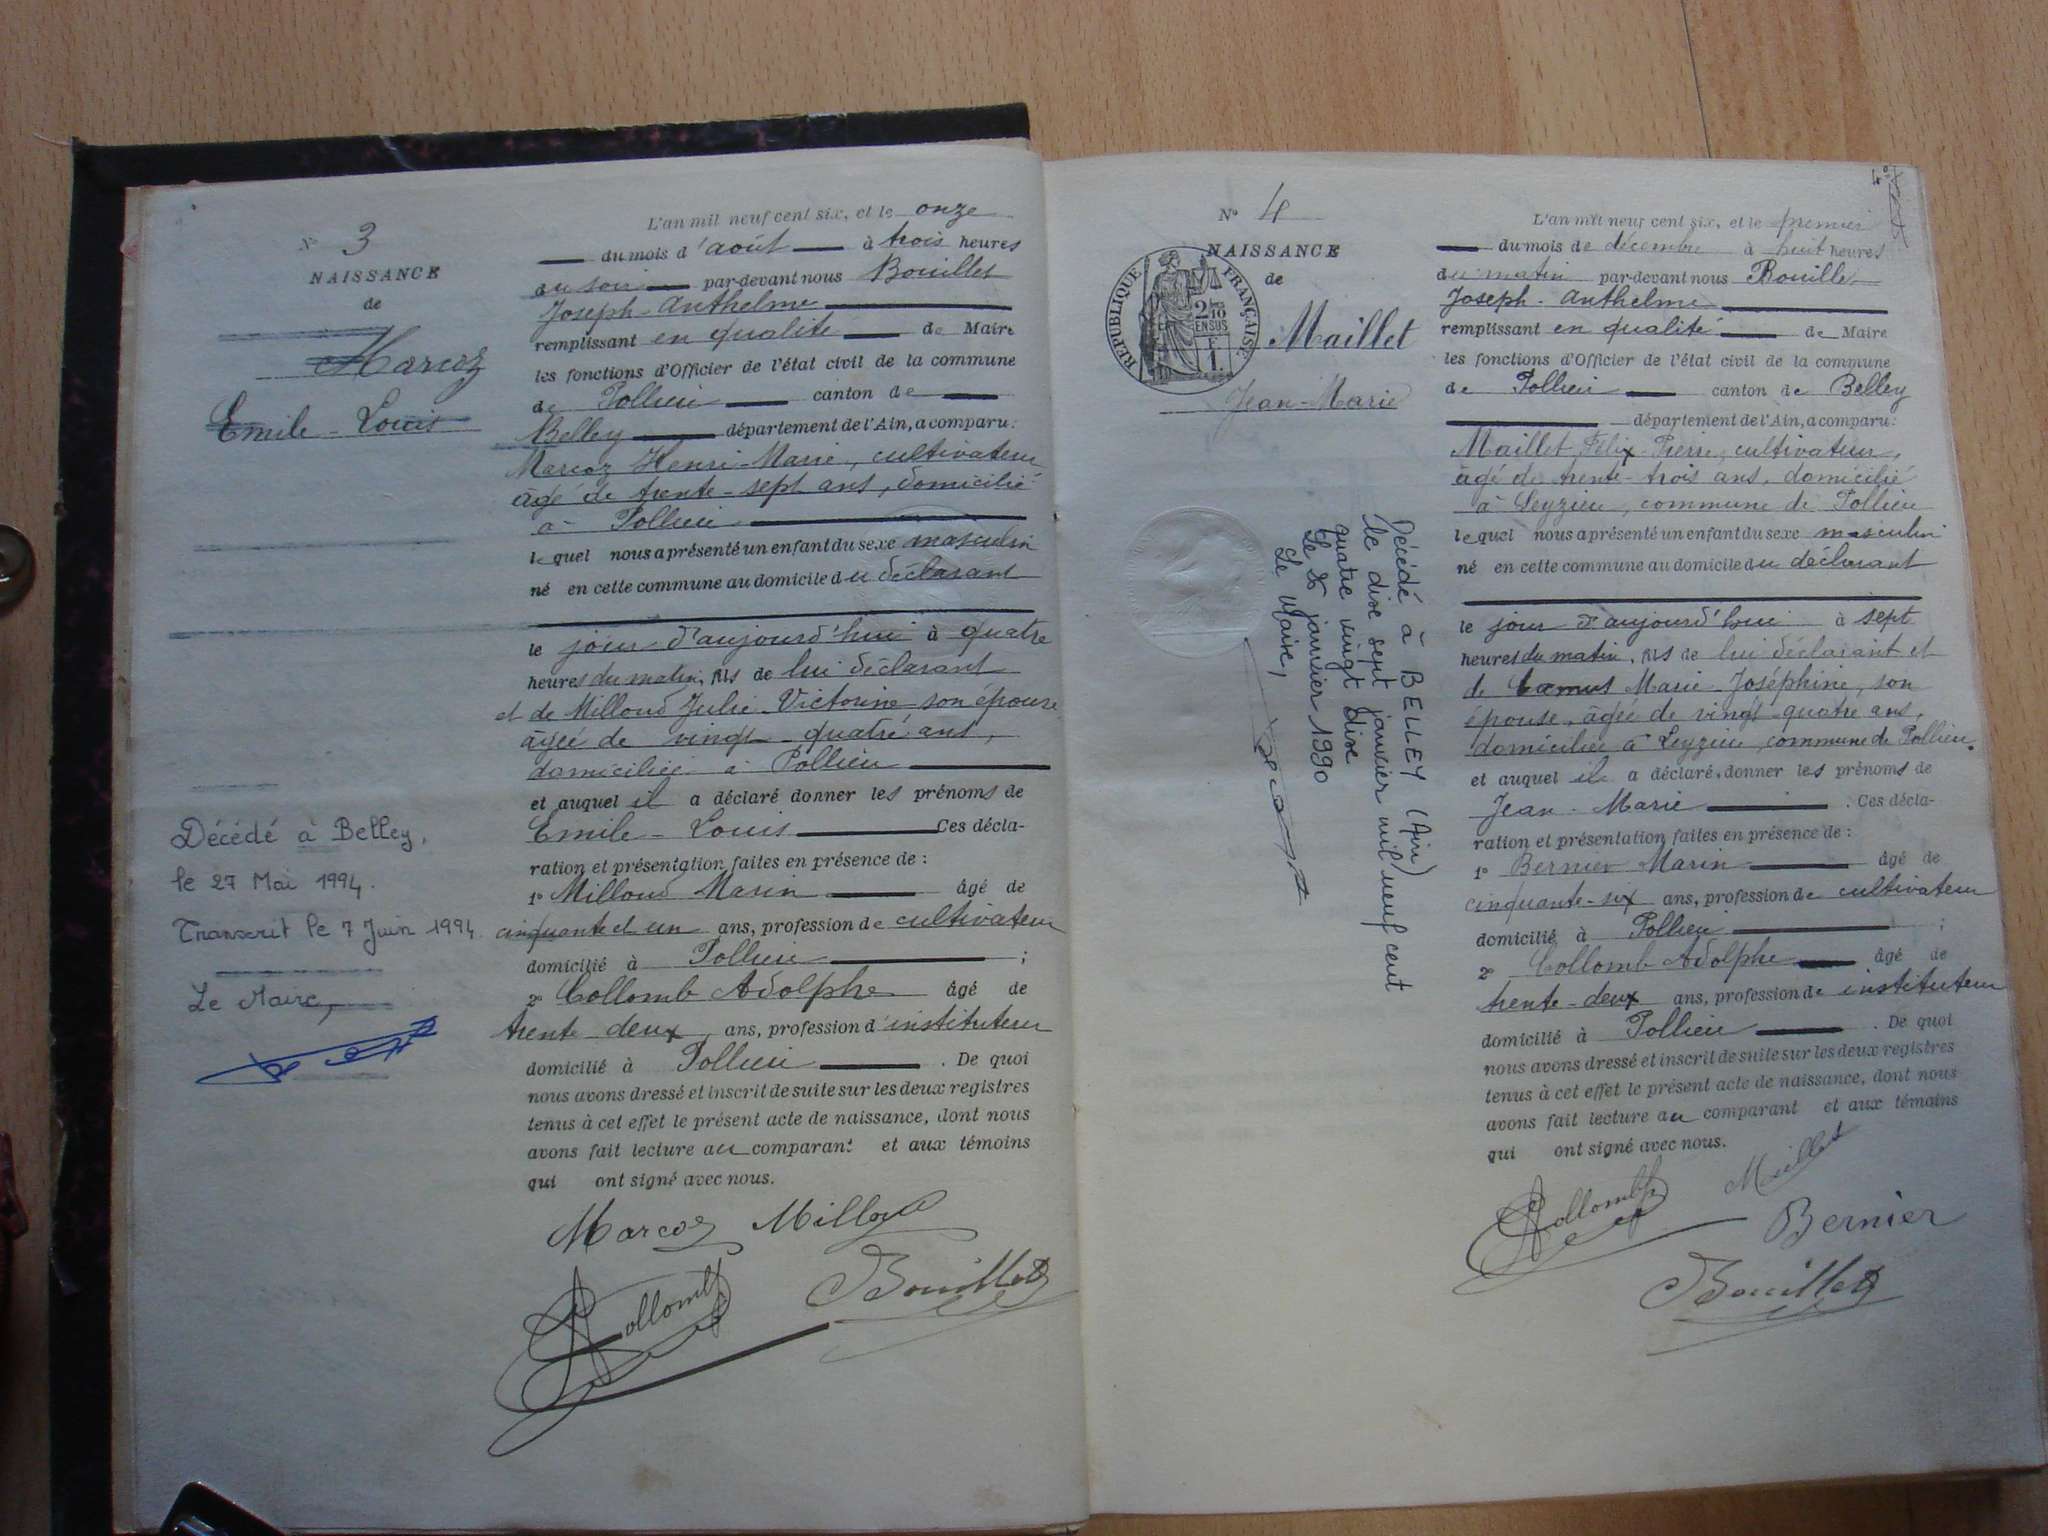 N° 3
NAISSANCE
de
Marcoz
Emile - Louis
Décédé à Belley,
le 27 Mai 1994.
Transcrit le 7 Juin 1994.
Le Maire,
L'an mil neuf cent six, et le onze
du mois d'août à trois heures
du soir par-devant nous Bouillet
Joseph-Anthelme
remplissant en qualité de Maire
les fonctions d'Officier de l'état civil de la commune
de Pollieu canton de
Belley département de l'Ain, a comparu :
Marcoz Henri-Marie, cultivateur
âgé de trente-sept ans, domicilié
à Pollieu
lequel nous a présenté un enfant du sexe masculin
né en cette commune au domicile du déclarant
le jour d'aujourd'hui à quatre
heures du matin, fils de lui déclarant
et de Milloud Julie-Victorine son épouse
âgée de vingt-quatre ans,
domiciliée à Pollieu
et auquel il a déclaré donner les prénoms de
Emile-Louis Ces décla-
ration et présentation faites en présence de :
1° Milloud Marin âgé de
cinquante et un ans, profession de cultivateur
domicilié à Pollieu ;
2° Collomb Adolphe âgé de
trente deux ans, profession d'instituteur
domicilié à Pollieu . De quoi
nous avons dressé et inscrit de suite sur les deux registres
tenus à cet effet le présent acte de naissance, dont nous
avons fait lecture au comparant et aux témoins
qui ont signé avec nous.
Marcoz Milloud
Collomb Bouillet
N° 4
NAISSANCE
de
Maillet
Jean-Marie
RÉPUBLIQUE FRANÇAISE
2/10
EN SUS
1 F.
Décédé à BELLEY (Ain)
le dix sept janvier mil neuf cent
quatre vingt dix
Le janvier 1990
Le Maire,
L'an mil neuf cent six, et le premier
du mois de décembre à huit heures
du matin par-devant nous Bouillet
Joseph-Anthelme
remplissant en qualité de Maire
les fonctions d'Officier de l'état civil de la commune
de Pollieu canton de Belley
département de l'Ain, a comparu :
Maillet Félix-Pierre, cultivateur,
âgé de trente-trois ans, domicilié
à Leyzieu, commune de Pollieu
lequel nous a présenté un enfant du sexe masculin
né en cette commune au domicile du déclarant
le jour d'aujourd'hui à sept
heures du matin, fils de lui déclarant et
de Camus Marie-Joséphine, son
épouse, âgée de vingt-quatre ans,
domiciliée à Leyzieu, commune de Pollieu.
et auquel il a déclaré donner les prénoms de
Jean-Marie . Ces décla-
ration et présentation faites en présence de :
1° Bernier Marin âgé de
cinquante-six ans, profession de cultivateur
domicilié à Pollieu ;
2° Collomb Adolphe âgé de
trente-deux ans, profession de instituteur
domicilié à Pollieu . De quoi
nous avons dressé et inscrit de suite sur les deux registres
tenus à cet effet le présent acte de naissance, dont nous
avons fait lecture au comparant et aux témoins
qui ont signé avec nous.
Collomb Maillet
Bernier
Bouillet